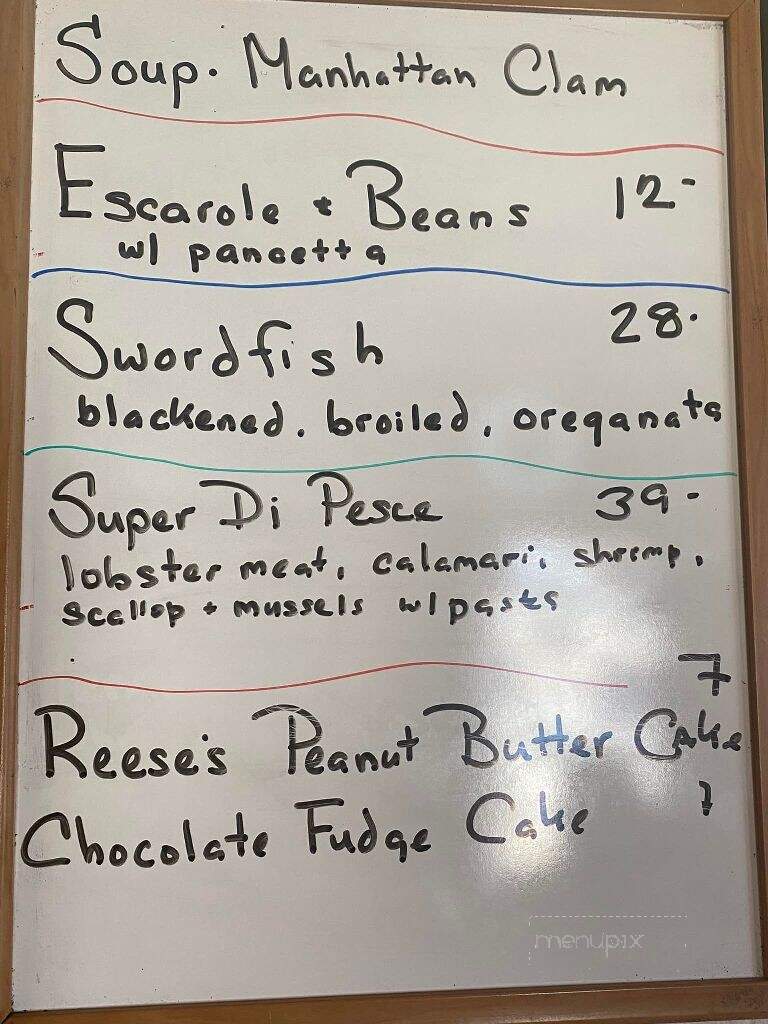 Soup. Manhattan Clam
Escarole + Beans 12-
w/ pancetta
Swordfish 28.
blackened. broiled, oreganata
Super Di Pesce 39-
lobster meat, calamari, shrimp,
scallop + mussels w/ pasta
7
Reese's Peanut Butter Cake
Chocolate Fudge Cake 7
menupix